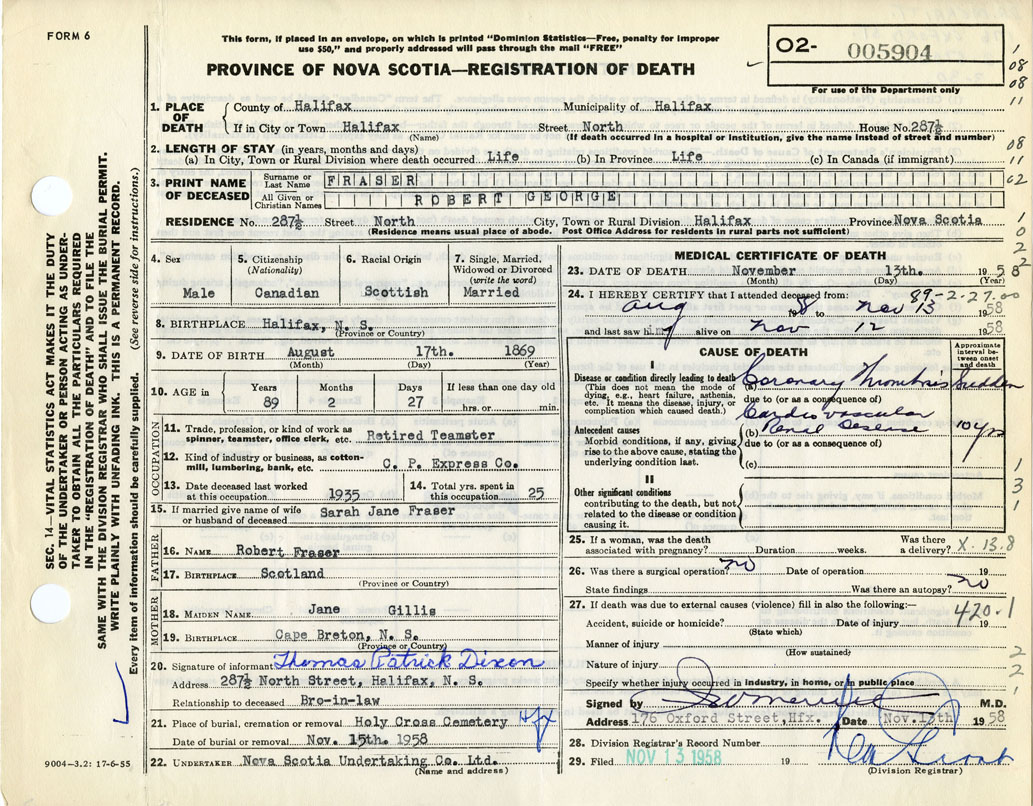 FORM 6
This form, if placed in an envelope, on which is printed "Dominion Statistics—Free, penalty for improper
use $50," and properly addressed will pass through the mail "FREE"
PROVINCE OF NOVA SCOTIA—REGISTRATION OF DEATH
02- 005904
For use of the Department only
1. PLACE OF DEATH
County of Halifax Municipality of Halifax
If in City or Town Halifax Street North House No. 287½
(Name) (If death occurred in a hospital or institution, give the name instead of street and number)
2. LENGTH OF STAY (in years, months and days)
(a) In City, Town or Rural Division where death occurred Life (b) In Province Life (c) In Canada (if immigrant)
3. PRINT NAME OF DECEASED
Surname or Last Name FRASER
All Given or Christian Names ROBERT GEORGE
RESIDENCE No. 287½ Street North City, Town or Rural Division Halifax Province Nova Scotia
(Residence means usual place of abode. Post Office Address for residents in rural parts not sufficient)
4. Sex
Male
5. Citizenship
(Nationality)
Canadian
6. Racial Origin
Scottish
7. Single, Married,
Widowed or Divorced
(write the word)
Married
8. BIRTHPLACE Halifax, N. S.
(Province or Country)
9. DATE OF BIRTH August 17th. 1869
(Month) (Day) (Year)
10. AGE in
Years Months Days If less than one day old
89 2 27 hrs. or min.
OCCUPATION
11. Trade, profession, or kind of work as
spinner, teamster, office clerk, etc. Retired Teamster
12. Kind of industry or business, as cotton-
mill, lumbering, bank, etc. C. P. Express Co.
13. Date deceased last worked
at this occupation 1935
14. Total yrs. spent in
this occupation 25
15. If married give name of wife
or husband of deceased Sarah Jane Fraser
FATHER
16. NAME Robert Fraser
17. BIRTHPLACE Scotland
(Province or Country)
MOTHER
18. MAIDEN NAME Jane Gillis
19. BIRTHPLACE Cape Breton, N. S.
(Province or Country)
20. Signature of informant Thomas Patrick Dixon
Address 287½ North Street, Halifax, N. S.
Relationship to deceased Bro-in-law
21. Place of burial, cremation or removal Holy Cross Cemetery Hfx
Date of burial or removal Nov. 15th. 1958
22. UNDERTAKER Nova Scotia Undertaking Co. Ltd.
(Name and address)
MEDICAL CERTIFICATE OF DEATH
23. DATE OF DEATH November 13th. 1958
(Month) (Day) (Year)
89-2-27.00
24. I HEREBY CERTIFY that I attended deceased from:
Aug 1958 to Nov 13 1958
and last saw him alive on Nov 12 1958
CAUSE OF DEATH
Approximate
interval be-
tween onset
and death
I
Disease or condition directly leading to death
(This does not mean the mode of
dying, e.g., heart failure, asthenia,
etc. It means the disease, injury, or
complication which caused death.)
(a) Coronary Thrombosis Sudden
due to (or as a consequence of)
Cardio vascular
Antecedent causes
Morbid conditions, if any, giving
rise to the above cause, stating the
underlying condition last.
(b) Renal Disease 10 yrs
due to (or as a consequence of)
(c)
II
Other significant conditions
contributing to the death, but not
related to the disease or condition
causing it.
25. If a woman, was the death
associated with pregnancy? Duration weeks. Was there
a delivery? X.13.8
26. Was there a surgical operation? no Date of operation 19
State findings Was there an autopsy? no
27. If death was due to external causes (violence) fill in also the following:— 420.1
Accident, suicide or homicide? Date of injury 19
(State which)
Manner of injury
(How sustained)
Nature of injury
Specify whether injury occurred in industry, in home, or in public place
Signed by M.D.
Address 176 Oxford Street, Hfx. Date Nov. 13th 1958
28. Division Registrar's Record Number
29. Filed NOV 13 1958 19
(Division Registrar)
SEC. 14—VITAL STATISTICS ACT MAKES IT THE DUTY
OF THE UNDERTAKER OR PERSON ACTING AS UNDER-
TAKER TO OBTAIN ALL THE PARTICULARS REQUIRED
IN THE "REGISTRATION OF DEATH" AND TO FILE THE
SAME WITH THE DIVISION REGISTRAR WHO SHALL ISSUE THE BURIAL PERMIT.
WRITE PLAINLY WITH UNFADING INK. THIS IS A PERMANENT RECORD.
Every item of information should be carefully supplied. (See reverse side for instructions.)
9004—3.2: 17-6-55
1
08
08
11
08
11
02
1
0
2
2
1
3
1
2
2
1